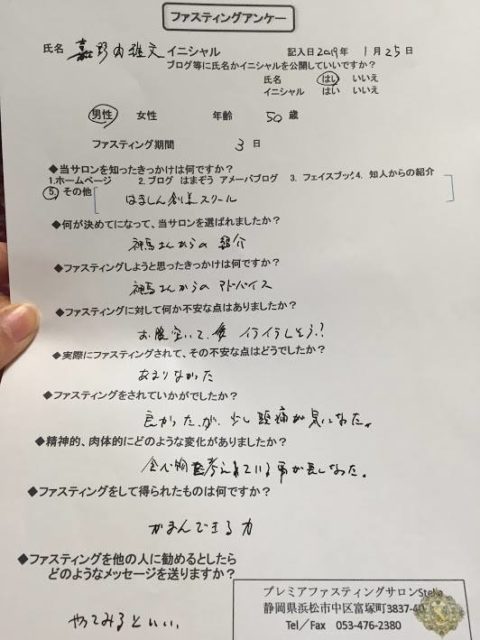 ファスティングアンケー
氏名 嘉野内雅文 イニシャル 記入日2019年 1月25日
ブログ等に氏名かイニシャルを公開していいですか?
氏名 はい いいえ
イニシャル はい いいえ
男性 女性 年齢 50 歳
ファスティング期間 3 日
◆当サロンを知ったきっかけは何ですか?
1.ホームページ 2.ブログ はまぞう アメーバブログ 3.フェイスブック 4.知人からの紹介
5 その他 はましん創業スクール
◆何が決めてになって、当サロンを選ばれましたか?
さんからの 紹介
◆ファスティングしようと思ったきっかけは何ですか?
さんからの アドバイス
◆ファスティングに対して何か不安な点はありましたか?
お腹空いて、 イライラしそう!?
◆実際にファスティングされて、その不安な点はどうでしたか?
あまりなかった
◆ファスティングをされていかがでしたか?
良かった、が、少し頭痛が気になった。
◆精神的、肉体的にどのような変化がありましたか?
食べ物を考えている事が長くなった。
◆ファスティングをして得られたものは何ですか?
がまんできる力
◆ファスティングを他の人に勧めるとしたら
どのようなメッセージを送りますか?
やってみるといい。
プレミアファスティングサロンStella
静岡県浜松市中区富塚町3837-40
Tel/Fax 053-476-2380